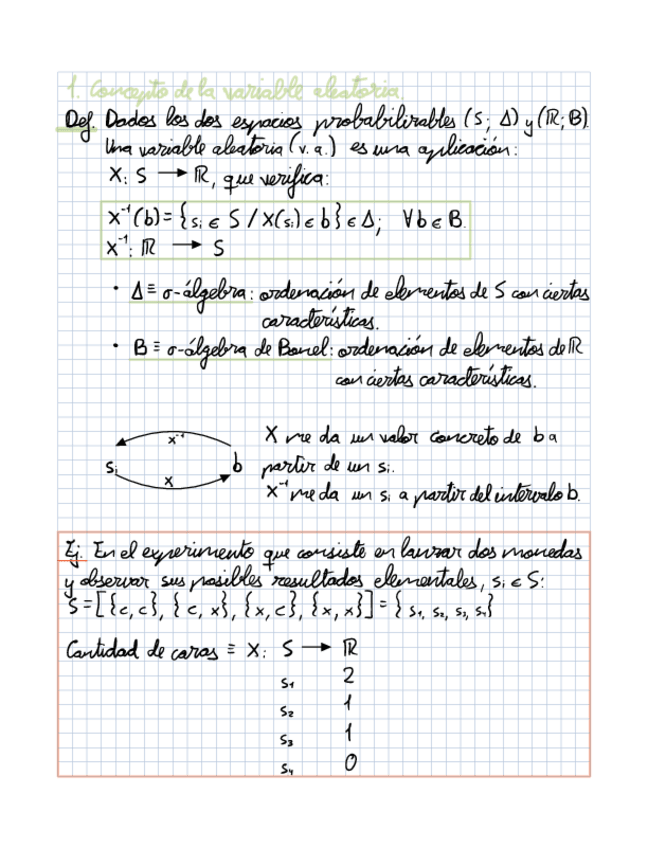 1. Concepto de la variable aleatoria.
Def. Dados los dos espacios probabilizables (S; Δ) y (ℝ; B)
Una variable aleatoria (v.a.) es una aplicación:
X: S → ℝ, que verifica:
X⁻¹(b) = {sᵢ ∈ S / X(sᵢ) ∈ b} ∈ Δ; ∀b ∈ B.
X⁻¹: ℝ → S
· Δ ≡ σ-álgebra: ordenación de elementos de S con ciertas
características.
· B ≡ σ-álgebra de Borel: ordenación de elementos de ℝ
con ciertas características.
X⁻¹
sᵢ b
X
X me da un valor concreto de b a
partir de un sᵢ.
X⁻¹ me da un sᵢ a partir del intervalo b.
Ej. En el experimento que consiste en lanzar dos monedas
y observar sus posibles resultados elementales, sᵢ ∈ S:
S = [{c, c}, {c, x}, {x, c}, {x, x}] = {s₁, s₂, s₃, s₄}
Cantidad de caras ≡ X: S → ℝ
s₁ 2
s₂ 1
s₃ 1
s₄ 0